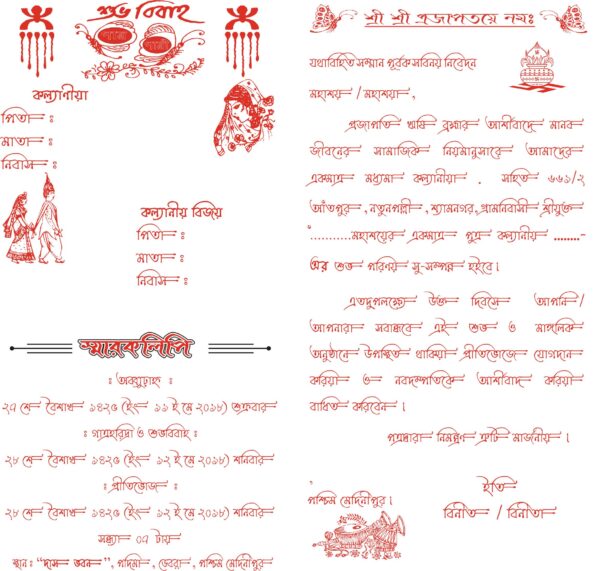 শুভ বিবাহ
পাত্র পাত্রী
কল্যাণীয়া
পিতা :
মাতা :
নিবাস :
কল্যাণীয় বিজয়
পিতা :
মাতা :
নিবাস :
স্মারকলিপি
: অব্যুঢ়ান্ন :
২৭ শে বৈশাখ ১৪২৫ (ইং ১১ ই মে ২০১৮) শুক্রবার
: গাত্রহরিদ্রা ও শুভবিবাহ :
২৮ শে বৈশাখ ১৪২৫ (ইং ১২ ই মে ২০১৮) শনিবার
: প্রীতিভোজ :
২৮ শে বৈশাখ ১৪২৫ (ইং ১২ ই মে ২০১৮) শনিবার
সন্ধ্যা ০৭ টায়
স্থান : “দাস ভবন”, পদিমা, ডেবরা, পশ্চিম মেদিনীপুর
শ্রী শ্রী প্রজাপতয়ে নমঃ
যথাবিহিত সম্মান পূর্বক সবিনয় নিবেদন
মহাশয় / মহাশয়া ,
প্রজাপতি ঋষি ব্রহ্মার আর্শীবাদে মানব
জীবনের সামাজিক নিয়মানুসারে আমাদের
একমাত্র মধ্যমা কল্যাণীয়া . সহিত ৬৬১/২
আঁতপুর, নতুনপল্লী, শ্যামনগর, গ্রামনিবাসী শ্রীযুক্ত
...........মহাশয়ের একমাত্র পুত্র কল্যাণীয় ........-
এর শুভ পরিণয় সু-সম্পন্ন হইবে।
এতদুপলক্ষ্যে উক্ত দিবসে আপনি/
আপনারা সবান্ধবে এই শুভ ও মাঙ্গলিক
অনুষ্ঠানে উপস্থিত থাকিয়া প্রীতিভোজে যোগদান
করিয়া ও নবদম্পতিকে আর্শীবাদ করিয়া
বাধিত করিবেন ।
পত্রদ্বারা নিমন্ত্রণ ত্রুটি মার্জনীয় ।
ইতি
বিনীত / বিনীতা
পশ্চিম মেদিনীপুর ।